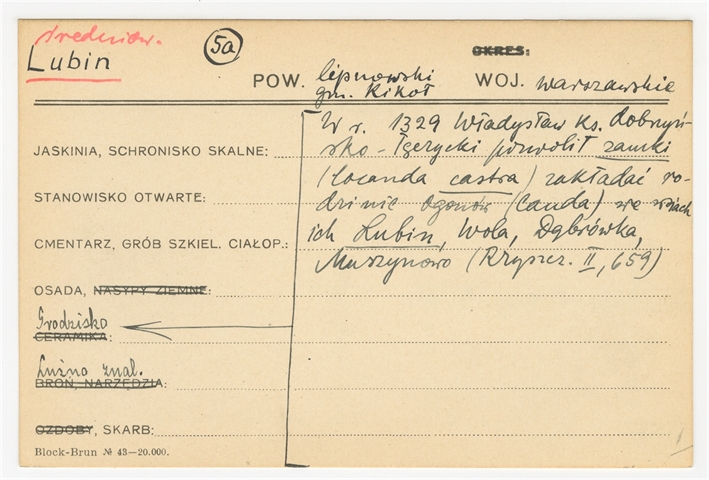 średniow.
Lubin
5a
OKRES:
POW. lipnowski
gm. Kikoł
WOJ. warszawskie
W r. 1329 Władysław ks. dobrzyń-
sko-łęczycki pozwolił zamki
JASKINIA, SCHRONISKO SKALNE:
(locanda castra) zakładać ro-
STANOWISKO OTWARTE:
dzinie Ogonów (Cauda) we wsiach
CMENTARZ, GRÓB SZKIEL. CIAŁOP.:
ich Lubin, Wola, Dąbrówka,
Muszynowo (Rzyszcz. II, 659)
OSADA, NASYPY ZIEMNE:
Grodzisko
CERAMIKA:
Luźno znal.
BROŃ, NARZĘDZIA:
OZDOBY, SKARB:
Block-Brun № 43—20.000.
1